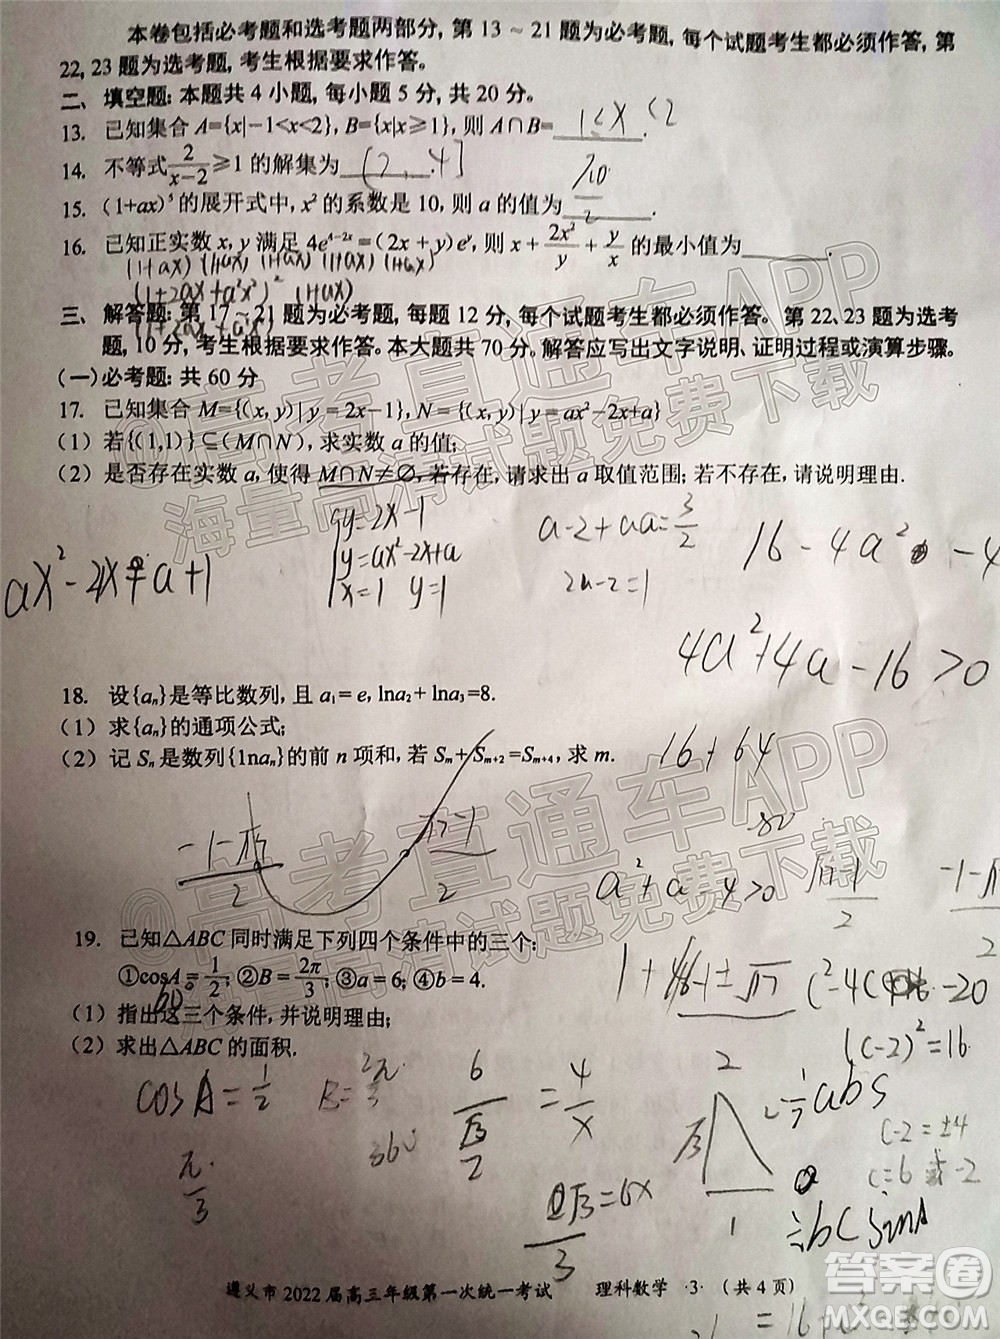 本卷包括必考题和选考题两部分, 第 13～21 题为必考题, 每个试题考生都必须作答, 第
22, 23 题为选考题, 考生根据要求作答。
二、填空题: 本题共 4 小题, 每小题 5 分, 共 20 分。
13. 已知集合 A={x|−1<x<2}, B={x|x≥1}, 则 A∩B= 1≤x<2
14. 不等式 2/(x−2) ≥1 的解集为 (2, 4].
15. (1+ax)⁵ 的展开式中, x² 的系数是 10, 则 a 的值为______.
16. 已知正实数 x, y 满足 4e^(4−2x)=(2x+y)e^y, 则 x+2x²/y+y/x 的最小值为______.
(1+ax)(1+ax)(1+ax)(1+ax)(1+ax)
(1+2ax+a²x²)² (1+ax)
三、解答题: 第 17～21 题为必考题, 每题 12 分, 每个试题考生都必须作答。第 22、23 题为选考
题, 10 分, 考生根据要求作答。本大题共 70 分。解答应写出文字说明、证明过程或演算步骤。
(一) 必考题: 共 60 分
17. 已知集合 M={(x, y)|y=2x−1}, N={(x, y)|y=ax²−2x+a}
(1) 若{(1,1)}⊆(M∩N), 求实数 a 的值;
(2) 是否存在实数 a, 使得 M∩N≠∅, 若存在, 请求出 a 取值范围; 若不存在, 请说明理由.
y=2x-1
y=ax²-2x+a
x=1 y=1
a-2+a
a=3/2
2a-2=1
16-4a²
-4
4a²+4a-16>0
18. 设{aₙ}是等比数列, 且 a₁=e, lna₂+lna₃=8.
(1) 求{aₙ}的通项公式;
(2) 记 Sₙ是数列{lnaₙ}的前 n 项和, 若 Sₘ+Sₘ₊₂=Sₘ₊₄, 求 m.
16+64
a²+a-4>0
19. 已知△ABC 同时满足下列四个条件中的三个:
①cosA=1/2; ②B=2π/3; ③a=6; ④b=4.
(1) 指出这三个条件, 并说明理由;
(2) 求出△ABC 的面积.
cosA=1/2
B=2π/3
6/(√3/2) = 4/x
π/3
360
(c-2)²=16
c-2=±4
c=6 或 -2
遵义市 2022 届高三年级第一次统一考试 理科数学 ·3· (共 4 页)
@高考直通车APP
海量高清试题免费下载
@高考直通车APP
海量高清试题免费下载
答案圈
MXQE.COM